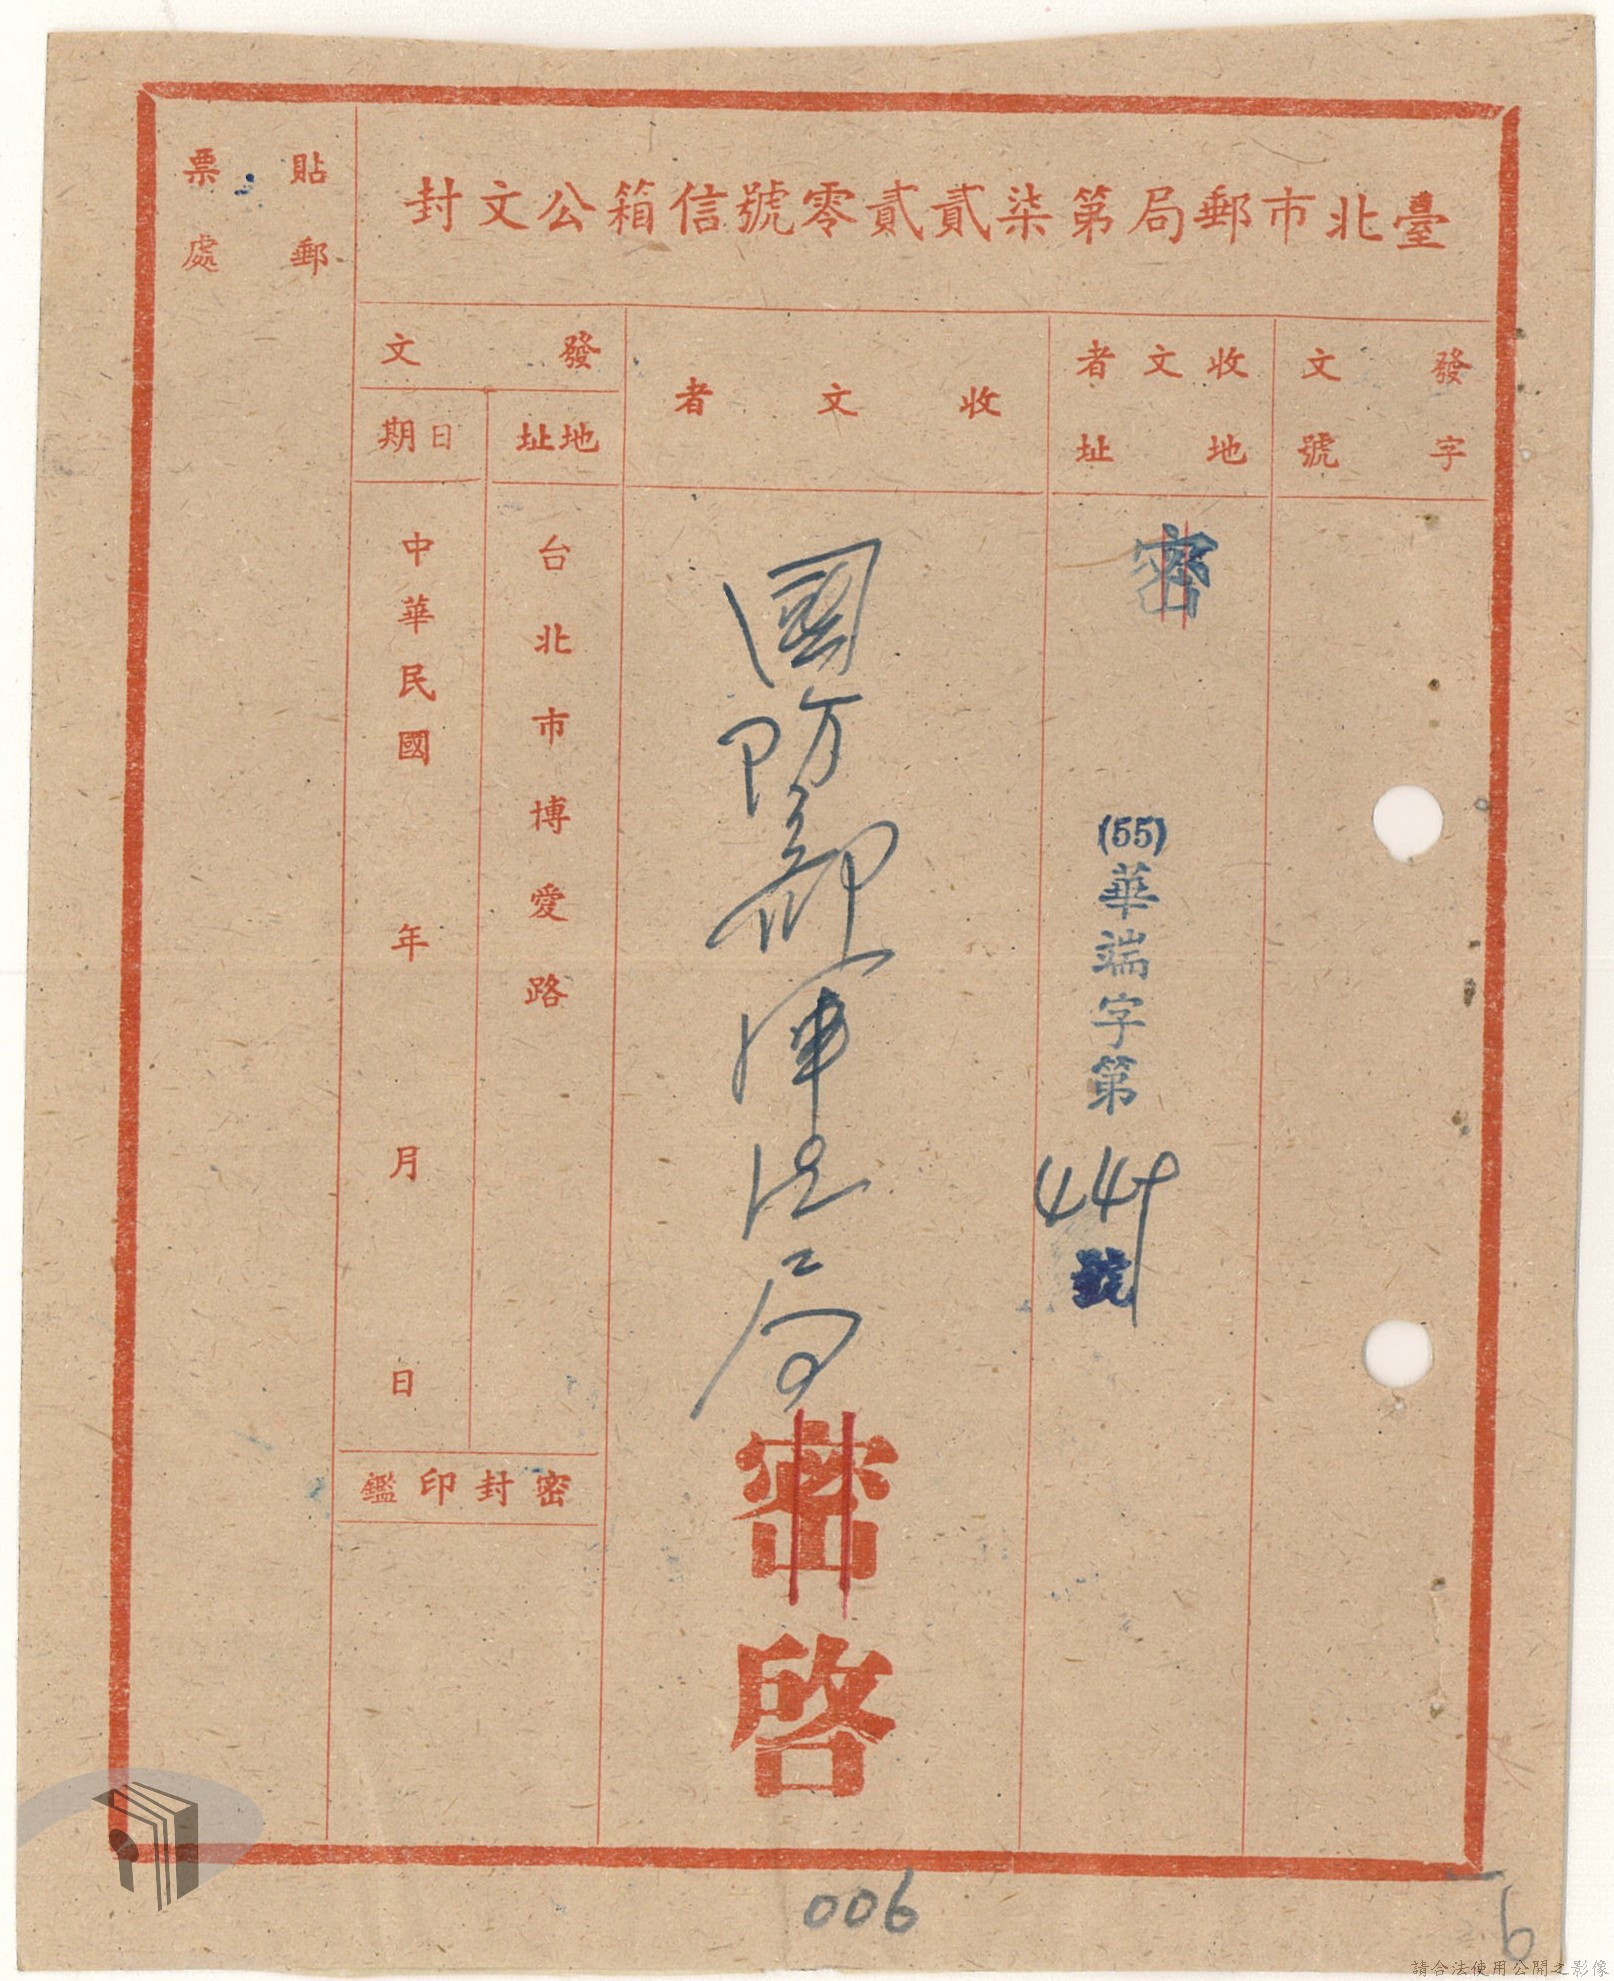 臺北市郵局第柒貳貳零號信箱公文封
貼郵
票處
發字
文號
收文者
地址
密
(55)華端字第449號
收文者
國防部軍法局
密啓
發文
地址
台北市博愛路
日期
中華民國 年 月 日
密封印鑑
006
6
請合法使用公開之影像